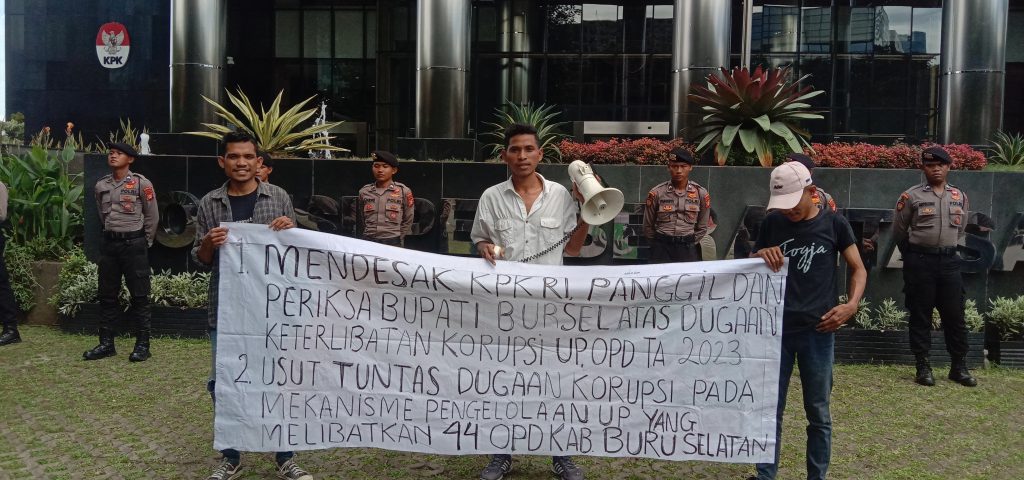 KPK
1. MENDESAK KPK RI. PANGGIL DAN
PERIKSA BUPATI BURSEL ATAS DUGAAN
KETERLIBATAN KORUPSI UP, OPD TA 2023
2. USUT TUNTAS DUGAAN KORUPSI PADA
MEKANISME PENGELOLAAN UP YANG
MELIBATKAN 44 OPD KAB. BURU SELATAN
POLISI